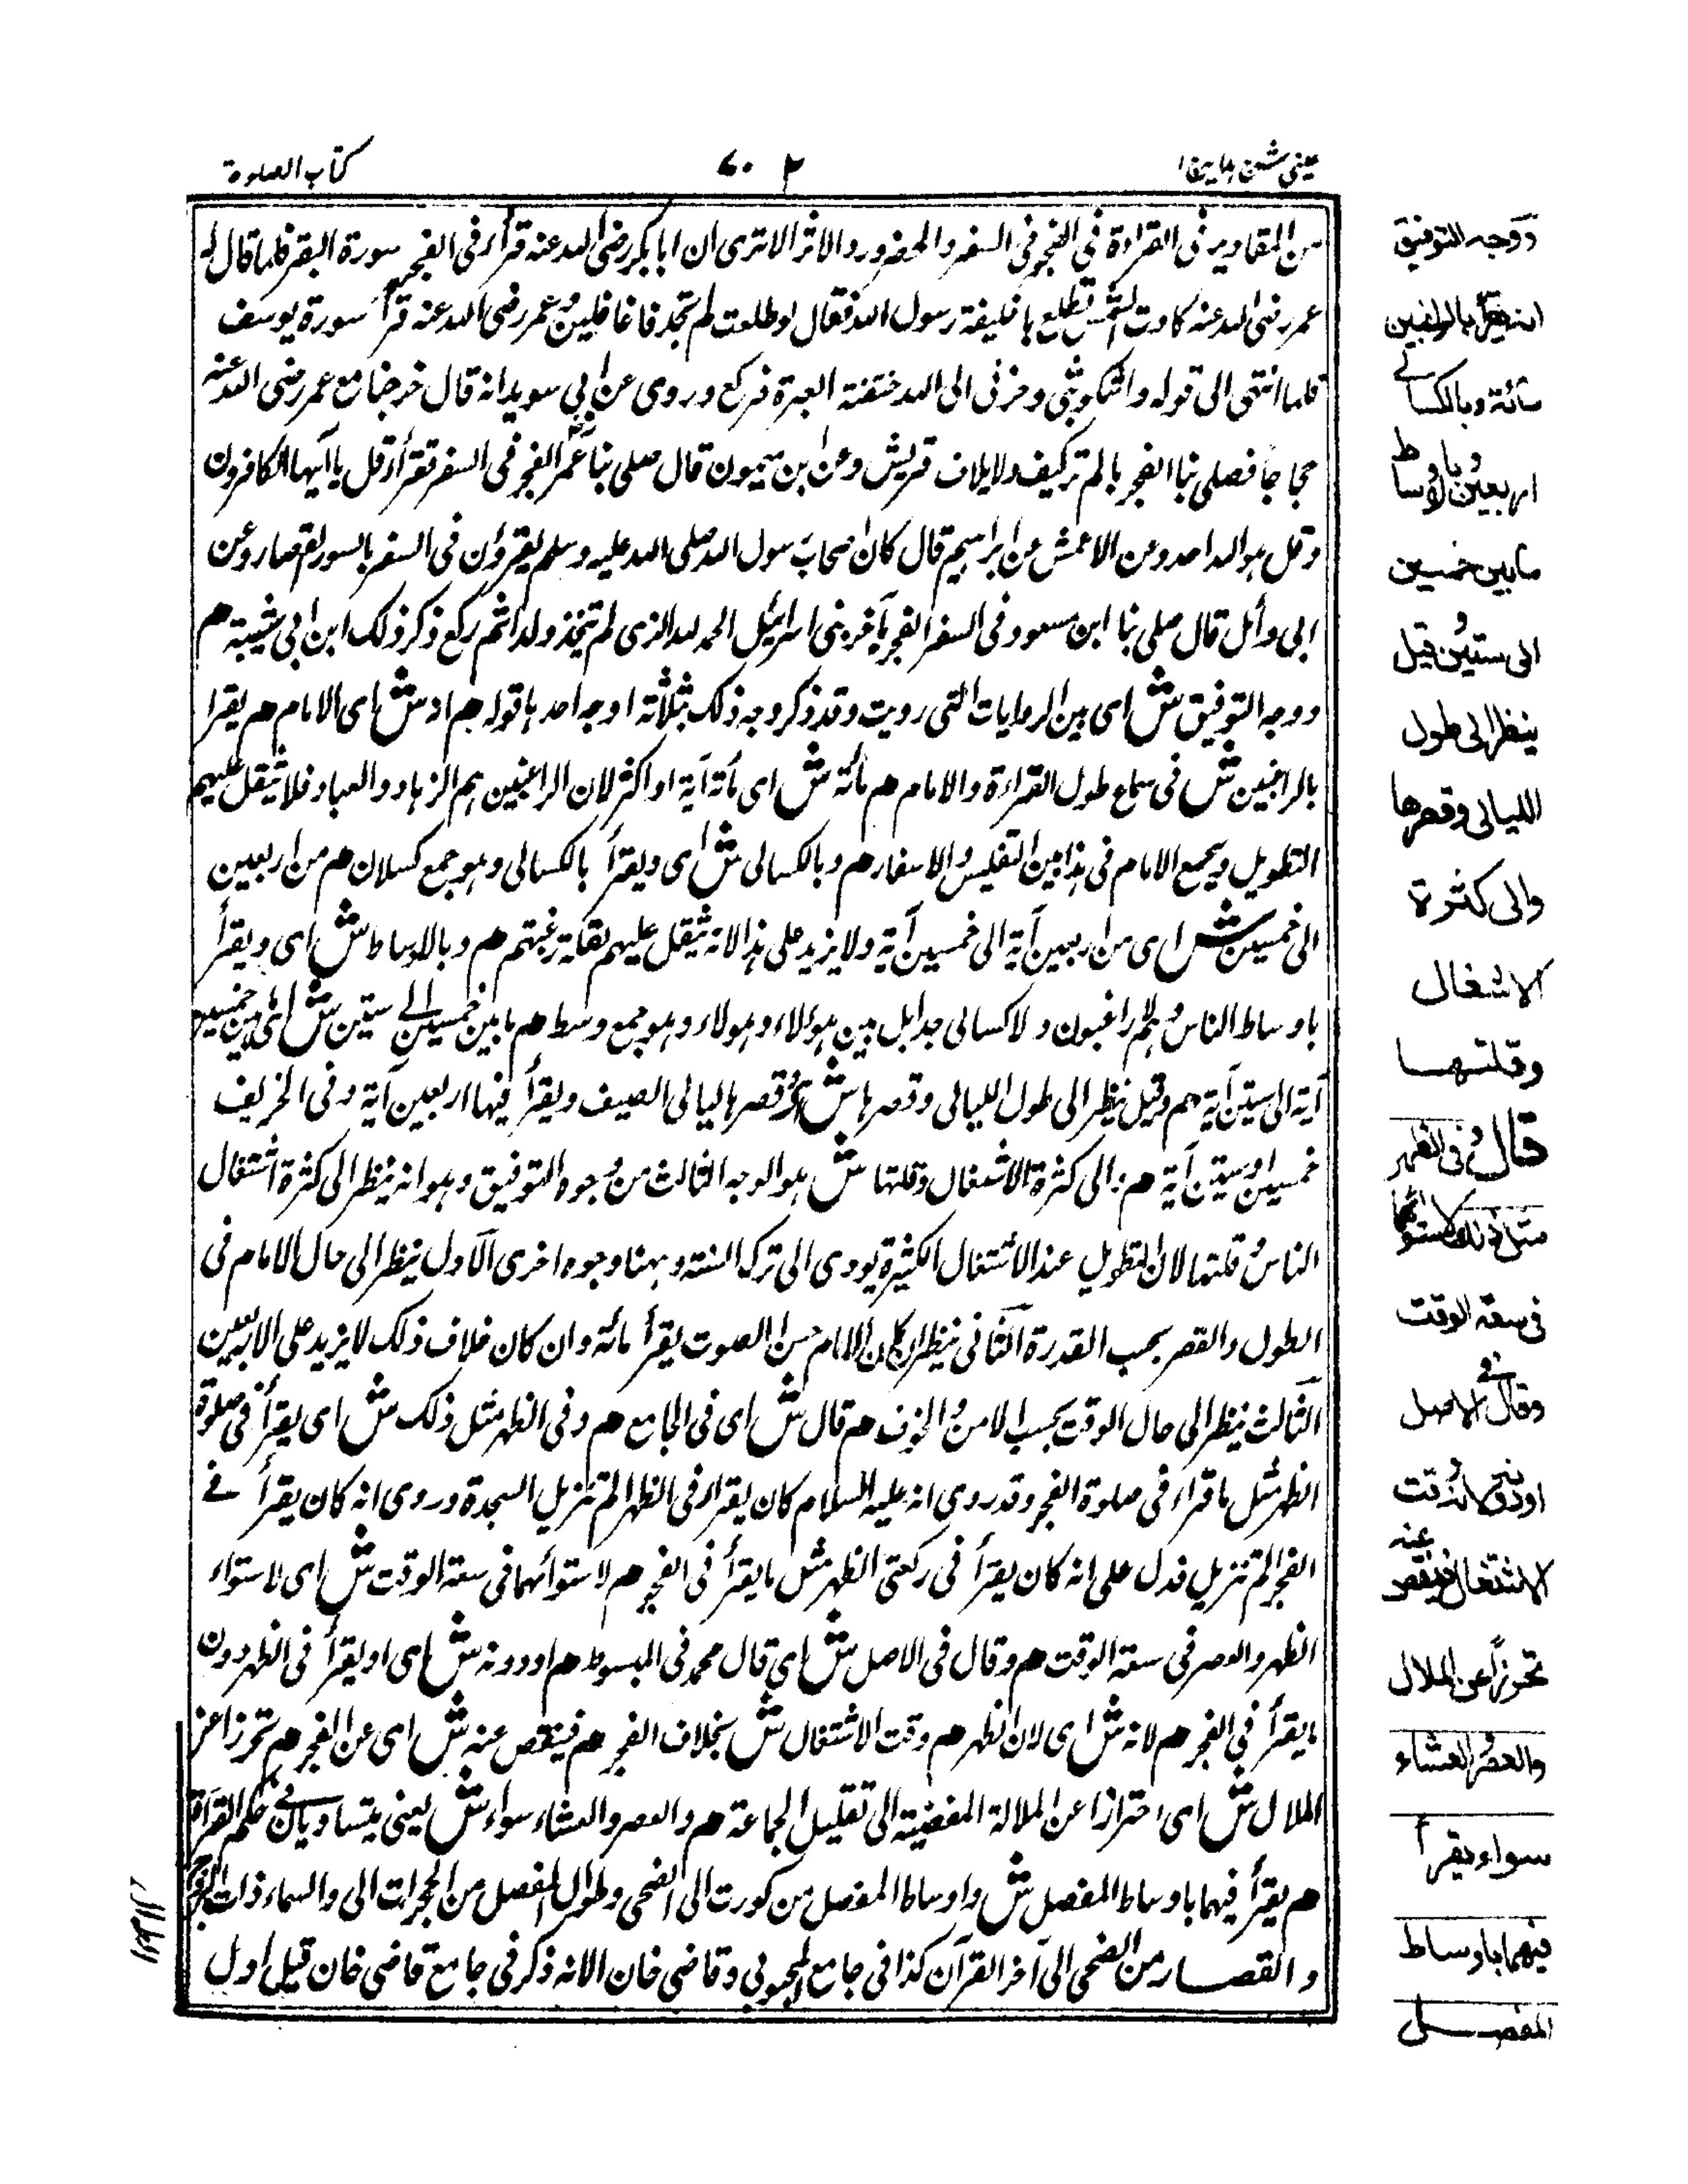 عینی شرح ہدایہ ج ۱
۶۰۲
کتاب الصلوة
من المقادیر فی القراءة فی الفجر فی السفر والحضر ورد الاثر الا تری ان ابا بکر رضی الله عنه قرأ فی الفجر سورة البقر فلما قال له
عمر رضی الله عنه کادت الشمس تطلع یا خلیفة رسول الله فقال لو طلعت لم تجدنا غافلین وعمر رضی الله عنه قرأ سورة یوسف
فلما انتهی الی قوله وانما اشکو بثی وحزنی الی الله خنقته العبرة فرکع وروی عن ابی سوید انه قال خرجنا مع عمر رضی الله عنه
حجاجا فصلی بنا الفجر بالم ترکیف ولایلاف قریش وعن ابن میمون قال صلی بنا عمر الفجر فی السفر فقرأ قل یا ایها الکافرون
وقل هو الله احد وعن الاعمش عن ابراهیم قال کان اصحاب رسول الله صلی الله علیه وسلم یقرؤن فی السفر بالسور القصار وعن
ابی وائل قال صلی بنا ابن مسعود فی السفر الفجر بآخر بنی اسرائیل الحمد لله الذی لم یتخذ ولدا ثم رکع ذکر ذلک ابن ابی شیبة هم
ووجه التوفیق ش ای بین الروایات التی رویت وقد ذکر وجه ذلک بثلاثة اوجه احدها قوله هم انه ش ای الامام هم یقرا
بالراغبین ش فی سماع طول القراءة والامام هم مائة ش ای مائة آیة او اکثر لان الراغبین هم الزهاد والعباد فلا یثقل علیهم
التطویل ویجمع الامام فی هذا بین التغلیس والاسفار هم وبالکسالی ش ای ویقرأ بالکسالی وهو جمع کسلان هم من اربعین
الی خمسین ش ای من اربعین آیة الی خمسین آیة ولا یزید علی هذا لانه یثقل علیهم لقلة رغبتهم هم وبالاوساط ش ای ویقرأ
باوساط الناس وهم لا راغبون ولا کسالی جدا بل بین هؤلاء وهولاء وهو جمع وسط هم ما بین خمسین الی ستین ش ای ما بین خمسین
آیة الی ستین آیة هم وقیل ینظر الی طول اللیالی وقصرها ش وقصرها لیالی الصیف ویقرأ فیها اربعین آیة وفی الخریف
خمسین او ستین آیة هم والی کثرة الاشغال وقلتها ش هو الوجه الثالث من وجوه التوفیق وهو انه ینظر الی کثرة اشتغال
الناس وقلتها لان التطویل عند الاشتغال الکثیرة یودی الی ترک السنة وههنا وجوه اخری الاول ینظر الی حال الامام فی
الطول والقصر بحسب القدرة الثانی ینظر ان کان الامام حسن الصوت یقرأ مائة وان کان خلاف ذلک لا یزید علی الاربعین
الثالث ینظر الی حال الوقت بحسب الامن والخوف هم قال ش ای فی الجامع هم وفی الظهر مثل ذلک ش ای یقرأ فی صلوة
الظهر مثل ما قراء فی صلوة الفجر وقد روی انه علیه السلام کان یقراء فی الظهر الم تنزیل السجدة وروی انه کان یقرأ فی
الفجر الم تنزیل فدل علی انه کان یقرأ فی رکعتی الظهر مثل ما یقرأ فی الفجر هم لاستوائهما فی سعة الوقت ش ای لاستواء
الظهر والعصر فی سعة الوقت هم وقال فی الاصل ش ای قال محمد فی المبسوط هم او دونه ش ای او یقرأ فی الظهر دون
ما یقرأ فی الفجر هم لانه ش ای لان الظهر هم وقت الاشتغال ش بخلاف الفجر هم فینقص عنه ش ای عن الفجر هم تحرزا عن
الملال ش ای احترازا عن الملالة المفضیة الی تقلیل الجماعة هم والعصر والعشاء سواء ش یعنی یتساویان فی حکم القراءة
هم یقرأ فیهما باوساط المفصل ش واوساط المفصل من کورت الی الضحی وطوال المفصل من الحجرات الی والسماء ذات البروج
والقصار من الضحی الی آخر القرآن کذا فی جامع المحبوبی وقاضی خان الا انه ذکر فی جامع قاضی خان قیل اول
ووجه التوفیق
انه یقرأ بالراغبین
مائة وبالکسالی
اربعین وبالاوساط
ما بین خمسین
الی ستین وقیل
ینظر الی طول
اللیالی وقصرها
والی کثرة
الاشغال
وقلتها
قال وفی الظهر
مثل ذلک لاستوائهما
فی سعة الوقت
وقال فی الاصل
او دونه لانه وقت
الاشتغال فینقص عنه
تحرزا عن الملال
والعصر والعشاء
سواء یقرأ
فیهما باوساط
المفصل